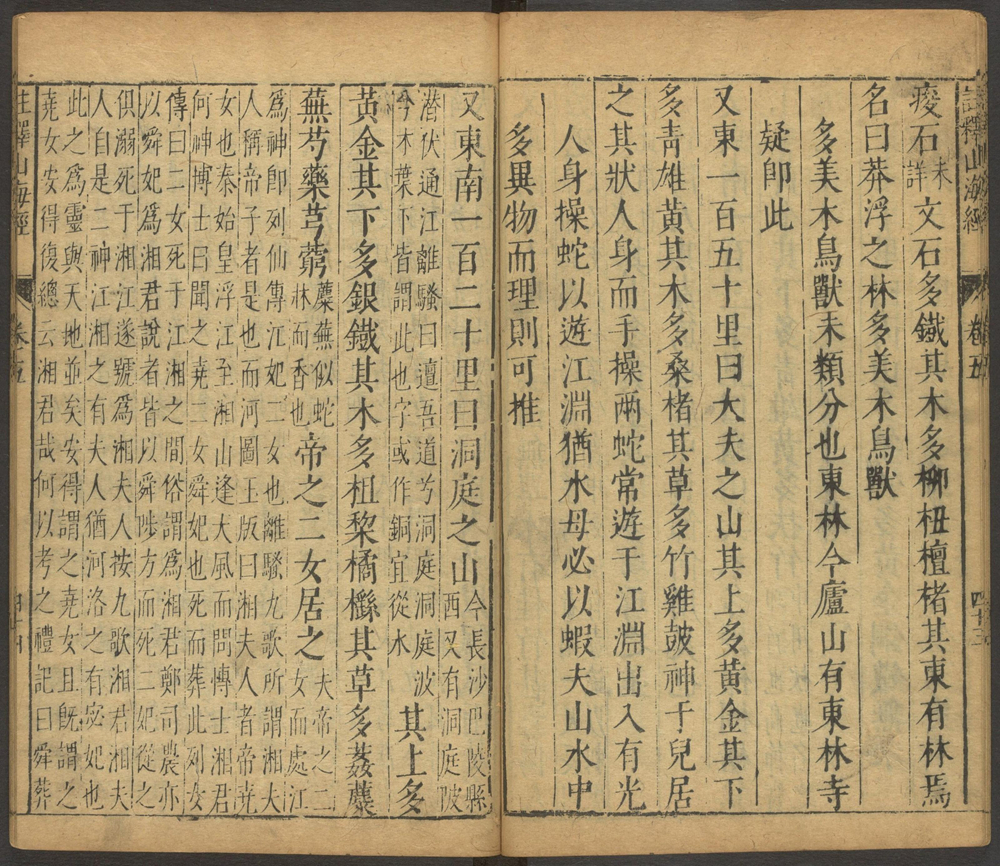 註釋山海經 卷五 四十三
痠石未詳文石多鐵其木多柳杻檀楮其東有林焉
名曰莽浮之林多美木鳥獸
多美木鳥獸未類分也東林今廬山有東林寺
疑即此
又東一百五十里曰大夫之山其上多黃金其下
多青雄黃其木多桑楮其草多竹雞鼓神于兒居
之其狀人身而手操兩蛇常遊于江淵出入有光
人身操蛇以遊江淵猶水母必以蝦夫山水中
多異物而理則可推
又東南一百二十里曰洞庭之山今長沙巴陵縣
西又有洞庭陂
潛伏通江離騷曰邅吾道兮洞庭洞庭波
今木葉下皆謂此也字或作銅宜從水其上多
黃金其下多銀鐵其木多柤棃橘櫾其草多葌蘪
蕪芍藥芎藭蘪蕪似蛇
牀而香也帝之二女居之夫帝之二
女而處江
為神即列仙傳江妃二女也離騷九歌所謂湘夫
人稱帝子者是也而河圖玉版曰湘夫人者帝堯
女也秦始皇浮江至湘山逢大風而問博士湘君
何神博士曰聞之堯二女舜妃也死而葬此列女
傳曰二女死于江湘之間俗謂為湘君鄭司農亦
以舜妃為湘君說者皆以舜陟方而死二妃從之
俱溺死于湘江遂號為湘夫人按九歌湘君湘夫
人自是二神江湘之有夫人猶河洛之有宓妃也
此之為靈與天地並矣安得謂之堯女且既謂之
堯女安得復總云湘君哉何以考之禮記曰舜葬
註釋山海經 卷五